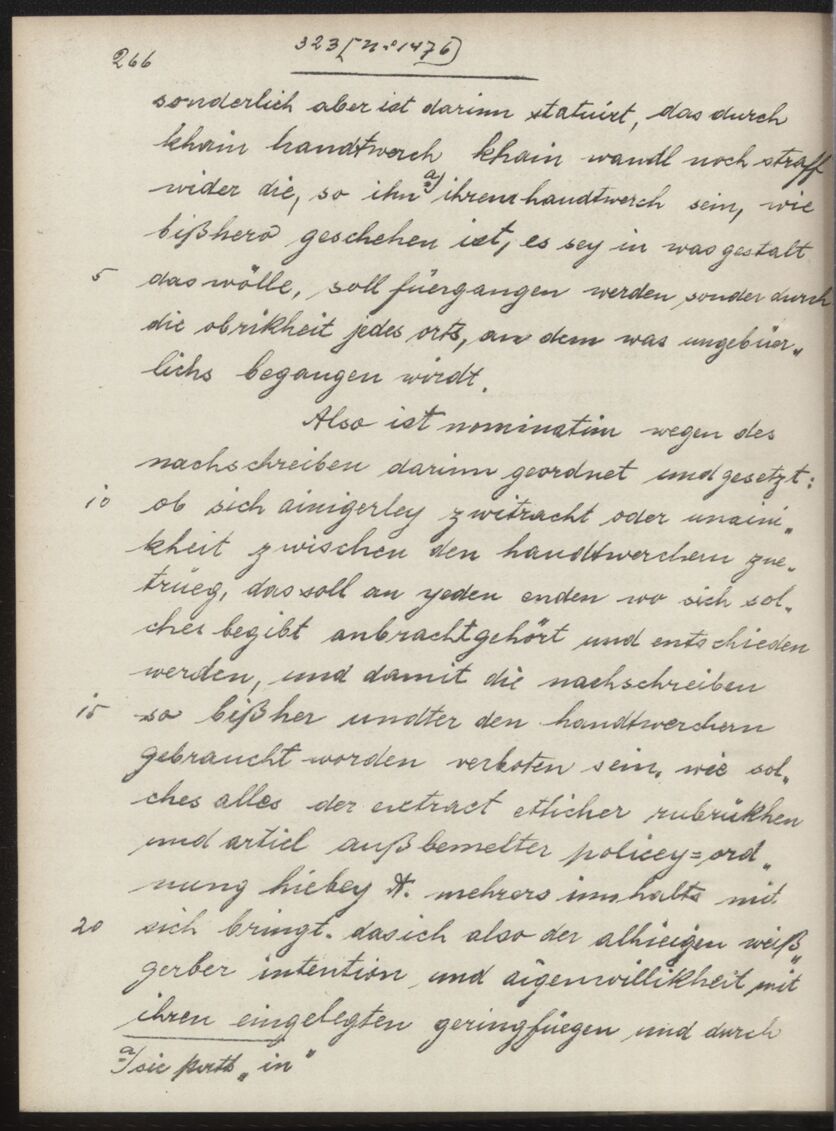 266
323 [No 1476]
sonderlich aber ist darinn statuirt, das durch
khain handtwerch khain wandl noch straff
wider die, so ihn a) ihrem handtwerch sein, wie
bißhero geschehen ist, es sey in was gestalt
5 das wölle, soll füergangen werden sonder durch
die obrikheit jedes orts, an dem was ungebüer„
lichs begangen wirdt.
Also ist nominatim wegen des
nachschreiben darinn geordnet und gesetzt:
10 ob sich ainigerley zwitracht oder unaini„
kheit zwischen den handtwerchern zue„
trüeg, das soll an yeden enden wo sich sol„
ches begibt anbracht gehört und entschieden
werden, und damit die nachschreiben
15 so bißher undter den handtwerchern
gebraucht worden verboten sein, wie sol„
ches alles der extract etlicher rubrükhen
und articl auß bemelter policey=ord„
nung hiebey A. mehrers innhalts mit
20 sich bringt. das ich also der alhieigen weiß„
gerber intention und aigenwillikheit mit
ihren eingelegten geringfüegen und durch
a) sic „in"